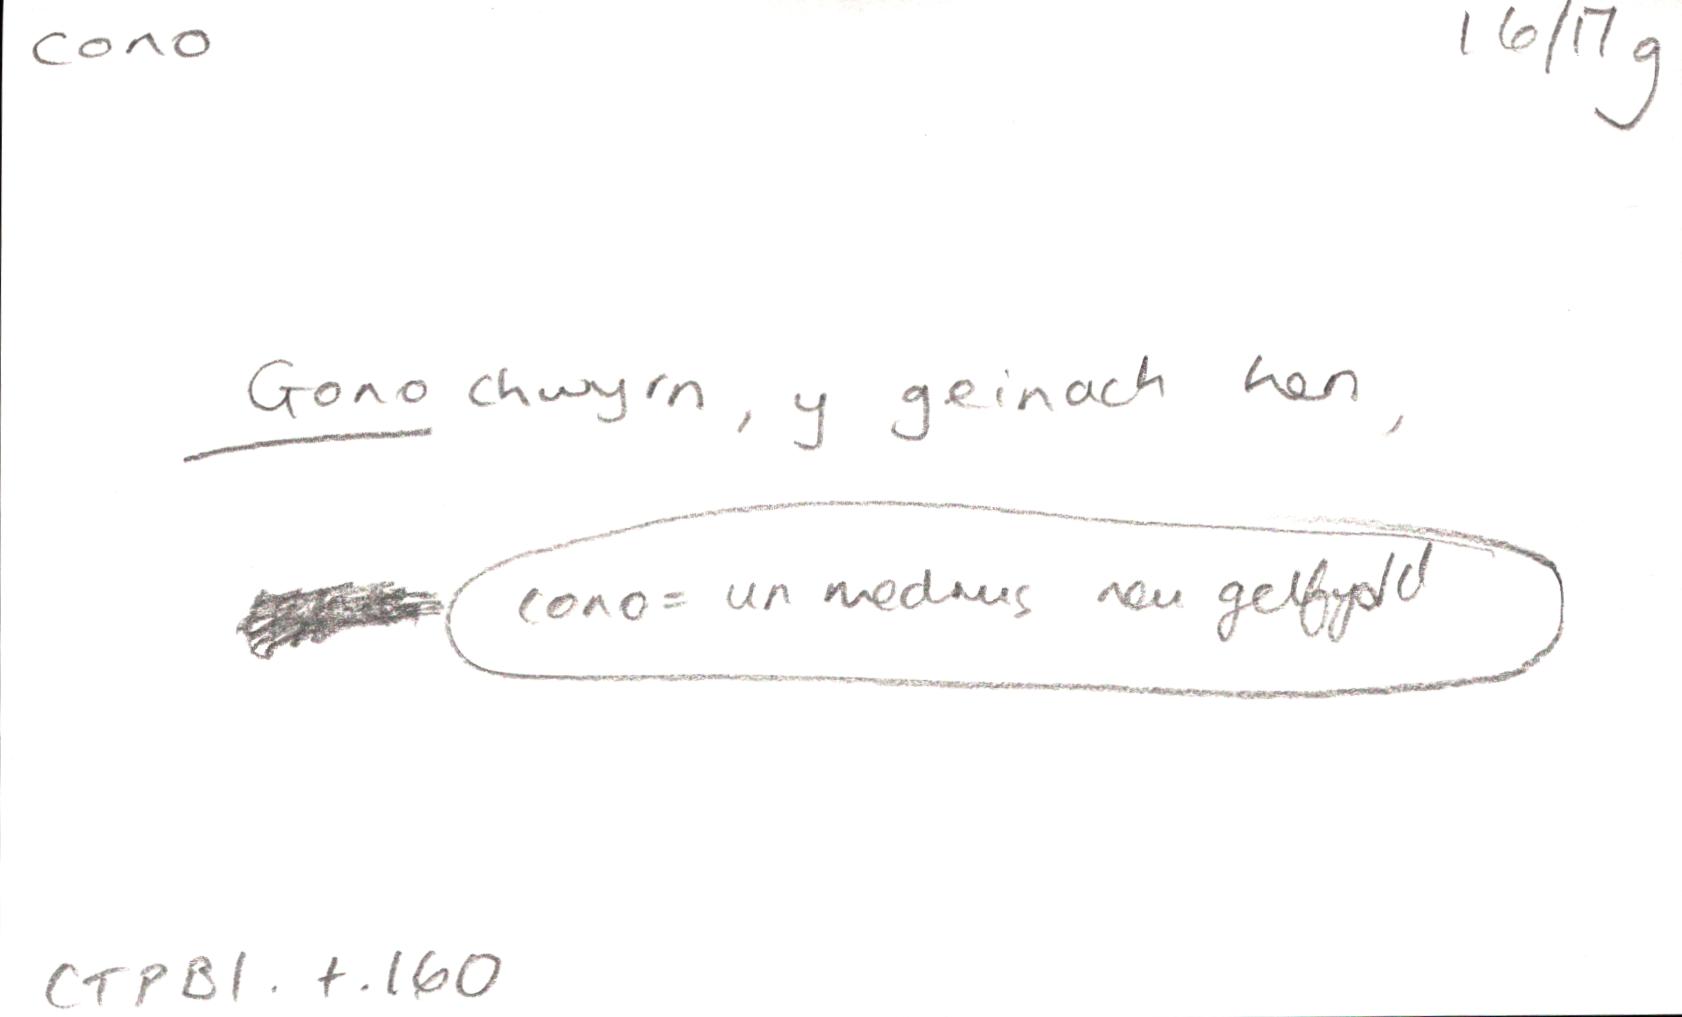 cono
16/17g
Gono chwyrn, y geinach hen,
cono = un medrus neu gelfydd
CTPB1. t.160